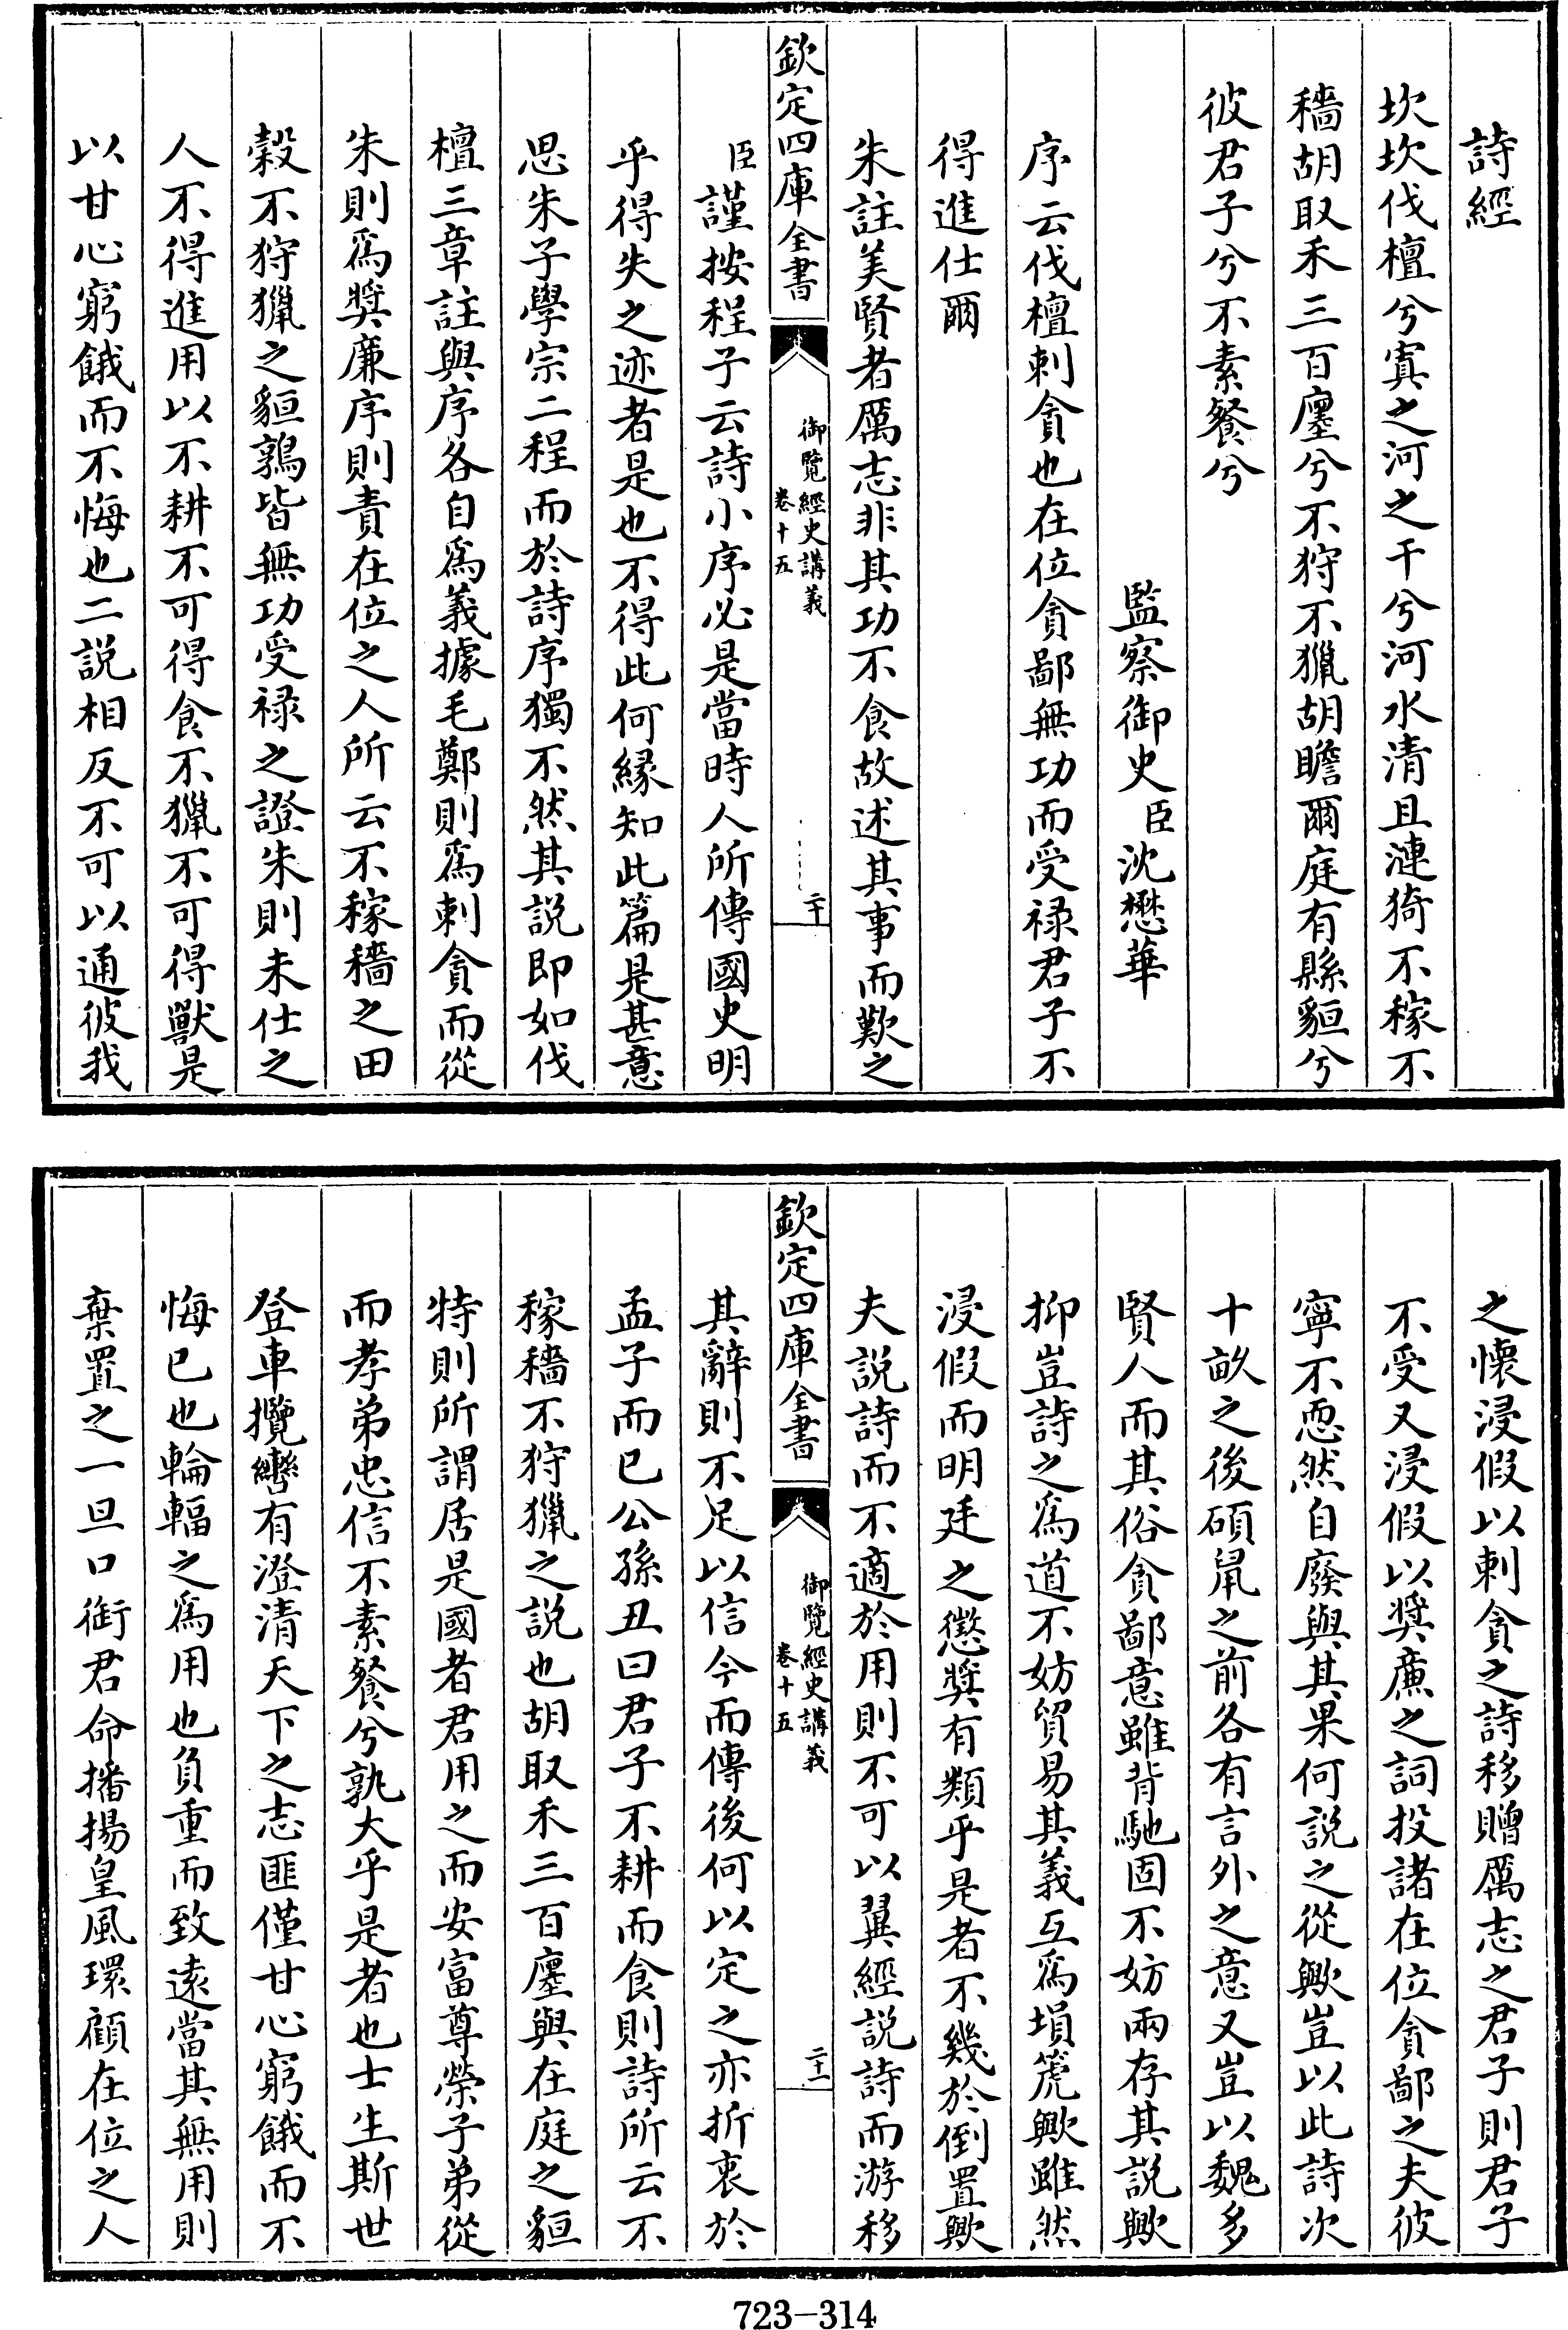 詩經
坎坎伐檀兮寘之河之干兮河水清且漣猗不稼不
穡胡取禾三百廛兮不狩不獵胡瞻爾庭有縣貆兮
彼君子兮不素餐兮
監察御史臣沈懋華
序云伐檀刺貪也在位貪鄙無功而受祿君子不
得進仕爾
朱註美賢者厲志非其功不食故述其事而歎之
欽定四庫全書
御覽經史講義
卷十五
二十
臣謹按程子云詩小序必是當時人所傳國史明
乎得失之迹者是也不得此何緣知此篇是甚意
思朱子學宗二程而於詩序獨不然其説即如伐
檀三章註與序各自爲義據毛鄭則爲刺貪而從
朱則爲奬廉序則責在位之人所云不稼穡之田
穀不狩獵之貆鶉皆無功受祿之證朱則未仕之
人不得進用以不耕不可得食不獵不可得獸是
以甘心窮餓而不悔也二説相反不可以通彼我
之懷浸假以刺貪之詩移贈厲志之君子則君子
不受又浸假以奬亷之詞投諸在位貪鄙之夫彼
寧不恧然自廢與其果何説之從歟豈以此詩次
十畝之後碩鼠之前各有言外之意又豈以魏多
賢人而其俗貪鄙意雖背馳固不妨兩存其説歟
抑豈詩之爲道不妨貿易其義互爲塤篪歟雖然
浸假而明廷之懲奬有類乎是者不幾於倒置歟
夫説詩而不適於用則不可以翼經説詩而游移
欽定四庫全書
御覽經史講義
卷十五
二十一
其辭則不足以信今而傳後何以定之亦折衷於
孟子而已公孫丑曰君子不耕而食則詩所云不
稼穡不狩獵之説也胡取禾三百廛與在庭之貆
特則所謂居是國者君用之而安富尊榮子弟從
而孝弟忠信不素餐兮孰大乎是者也士生斯世
登車攬轡有澄清天下之志匪僅甘心窮餓而不
悔已也輪輻之爲用也負重而致遠當其無用則
棄置之一旦口銜君命播揚皇風環顧在位之人
723-314